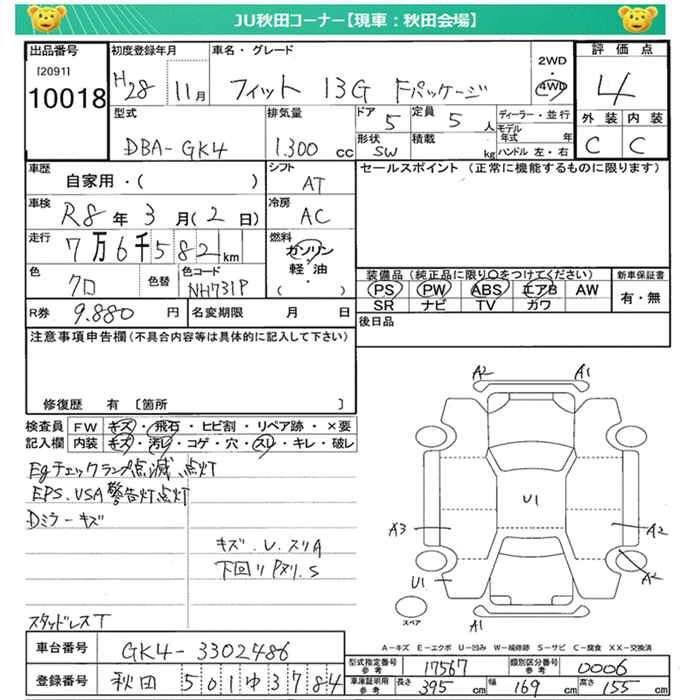 JU秋田コーナー【現車：秋田会場】
出品番号
[2091]
10018
初度登録年月
H28 11月
車名・グレード
フィット 13G Fパッケージ
2WD
・
4WD
評価点
4
外装 内装
C C
型式
DBA-GK4
排気量
1.300 cc
ドア
5
定員
5 人
形状
SW
積載
kg
ディーラー・並行
モデル年式 年
ハンドル 左・右
車歴
自家用・( )
シフト
AT
セールスポイント (正常に機能するものに限ります)
車検
R8年 3月(2日)
冷房
AC
走行
7万6千582km
燃料
ガソリン
軽油
・( )
色
クロ
色替
色コード
NH731P
装備品 (純正品に限り○をつけてください)
PS PW ABS エアB AW
SR ナビ TV カワ
新車保証書
有・無
R券 9.880 円
名変期限 月 日
後日品
注意事項申告欄(不具合内容等は具体的に記入して下さい)
修復歴 有 〔箇所 〕
検査員記入欄
FW キズ・飛石・ヒビ割・リペア跡・×要
内装 キズ・汚レ・コゲ・穴・スレ・キレ・破レ
Egチェックランプ点滅、点灯
EPS、VSA警告灯点灯
Dミラーキズ
キズ.U.スリA
下回りPヌリ.S
スタッドレスT
A2 A1
U1
A3 A2
U1
A1
スペア
A－キズ E－エクボ U－凹み W－補修跡 S－サビ C－腐食 XX－交換済
車台番号 GK4-3302486
登録番号 秋田 501ゆ3784
型式指定番号 参考 17567
類別区分番号 参考 0006
車庫証明用 参考 長さ 395cm 幅 169cm 高さ 155cm